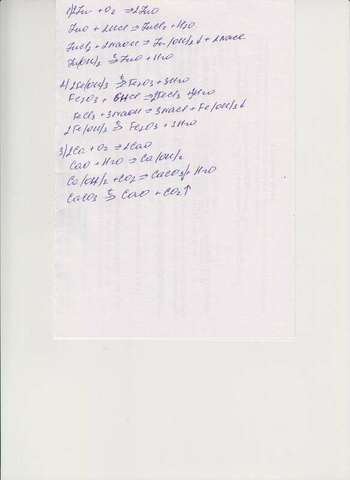 1) 2Zn + O2 = 2ZnO
ZnO + 2HCl = ZnCl2 + H2O
ZnCl2 + 2NaOH = Zn(OH)2↓ + 2NaCl
Zn(OH)2 t= ZnO + H2O
2) 2Fe(OH)3 t= Fe2O3 + 3H2O
Fe2O3 + 6HCl = 2FeCl3 + 3H2O
FeCl3 + 3NaOH = 3NaCl + Fe(OH)3↓
2Fe(OH)3 t= Fe2O3 + 3H2O
3) 2Ca + O2 = 2CaO
CaO + H2O = Ca(OH)2
Ca(OH)2 + CO2 = CaCO3↓ + H2O
CaCO3 t= CaO + CO2↑